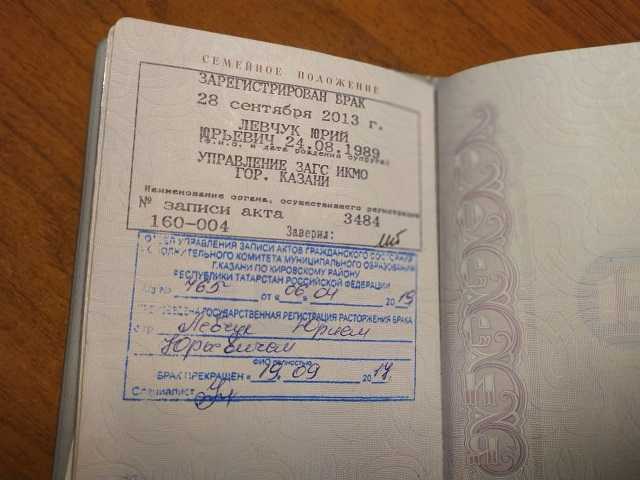 СЕМЕЙНОЕ ПОЛОЖЕНИЕ
ЗАРЕГИСТРИРОВАН БРАК
28 сентября 2013 г.
ЛЕВЧУК ЮРИЙ
ЮРЬЕВИЧ 24.08.1989
(ф.и.о. и дата рождения супруга)
УПРАВЛЕНИЕ ЗАГС ИКМО
ГОР. КАЗАНИ
Наименование органа, осуществившего регистрацию
№ записи акта 3484
160-004 Заверил:
ОТДЕЛ УПРАВЛЕНИЯ ЗАПИСИ АКТОВ ГРАЖДАНСКОГО СОСТОЯНИЯ
ИСПОЛНИТЕЛЬНОГО КОМИТЕТА МУНИЦИПАЛЬНОГО ОБРАЗОВАНИЯ
Г.КАЗАНИ ПО КИРОВСКОМУ РАЙОНУ
РЕСПУБЛИКИ ТАТАРСТАН РОССИЙСКОЙ ФЕДЕРАЦИИ
А/З № 765 от «06» 04 2019
ПРОИЗВЕДЕНА ГОСУДАРСТВЕННАЯ РЕГИСТРАЦИЯ РАСТОРЖЕНИЯ БРАКА
с гр. Левчук Юрием
Юрьевичем
ФИО полностью
БРАК ПРЕКРАЩЕН «19» 09 2017
Специалист